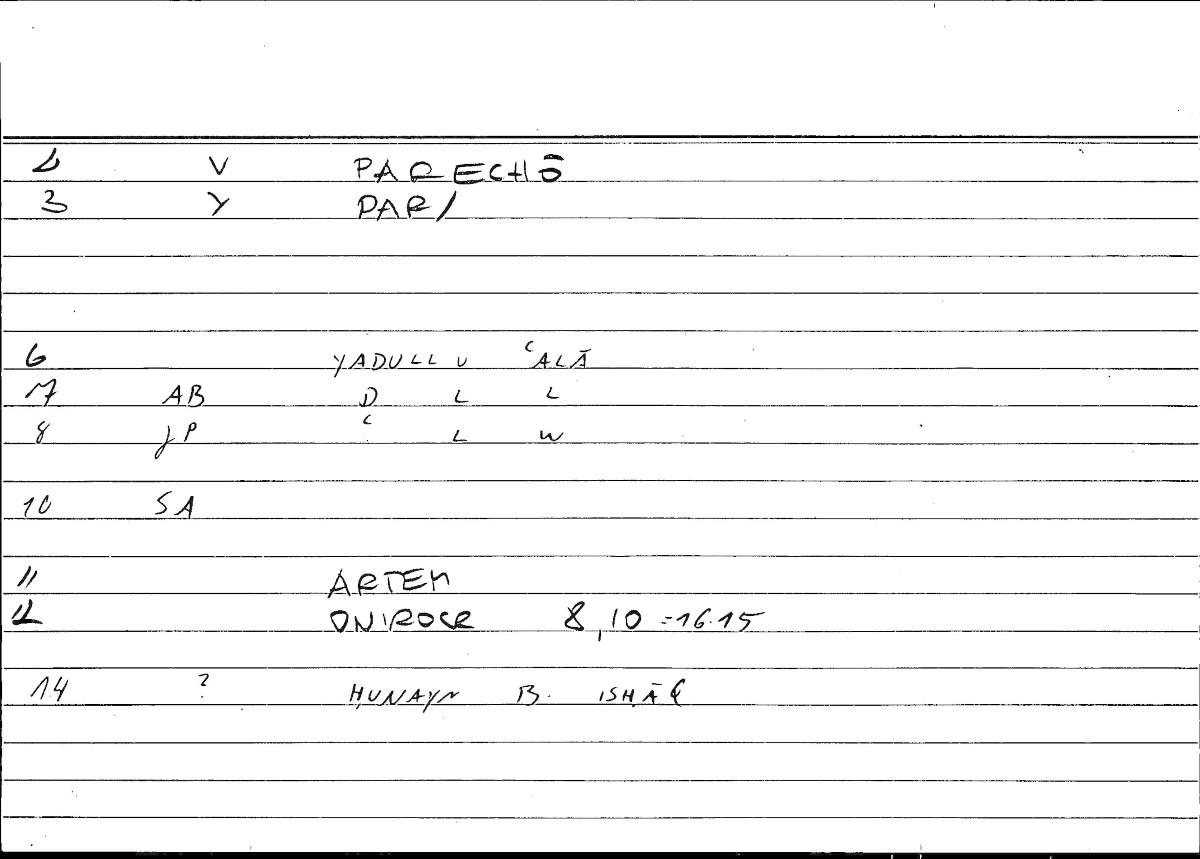 2 V PARECHŌ
3 Y PAR/
6 YADULLU ʿALĀ
7 AB D L L
8 JP ʿ L W
10 SA
11 ARTEM
12 ONIROCR 8,10 =16.15
14 ? ḤUNAYN B. ISḤĀQ